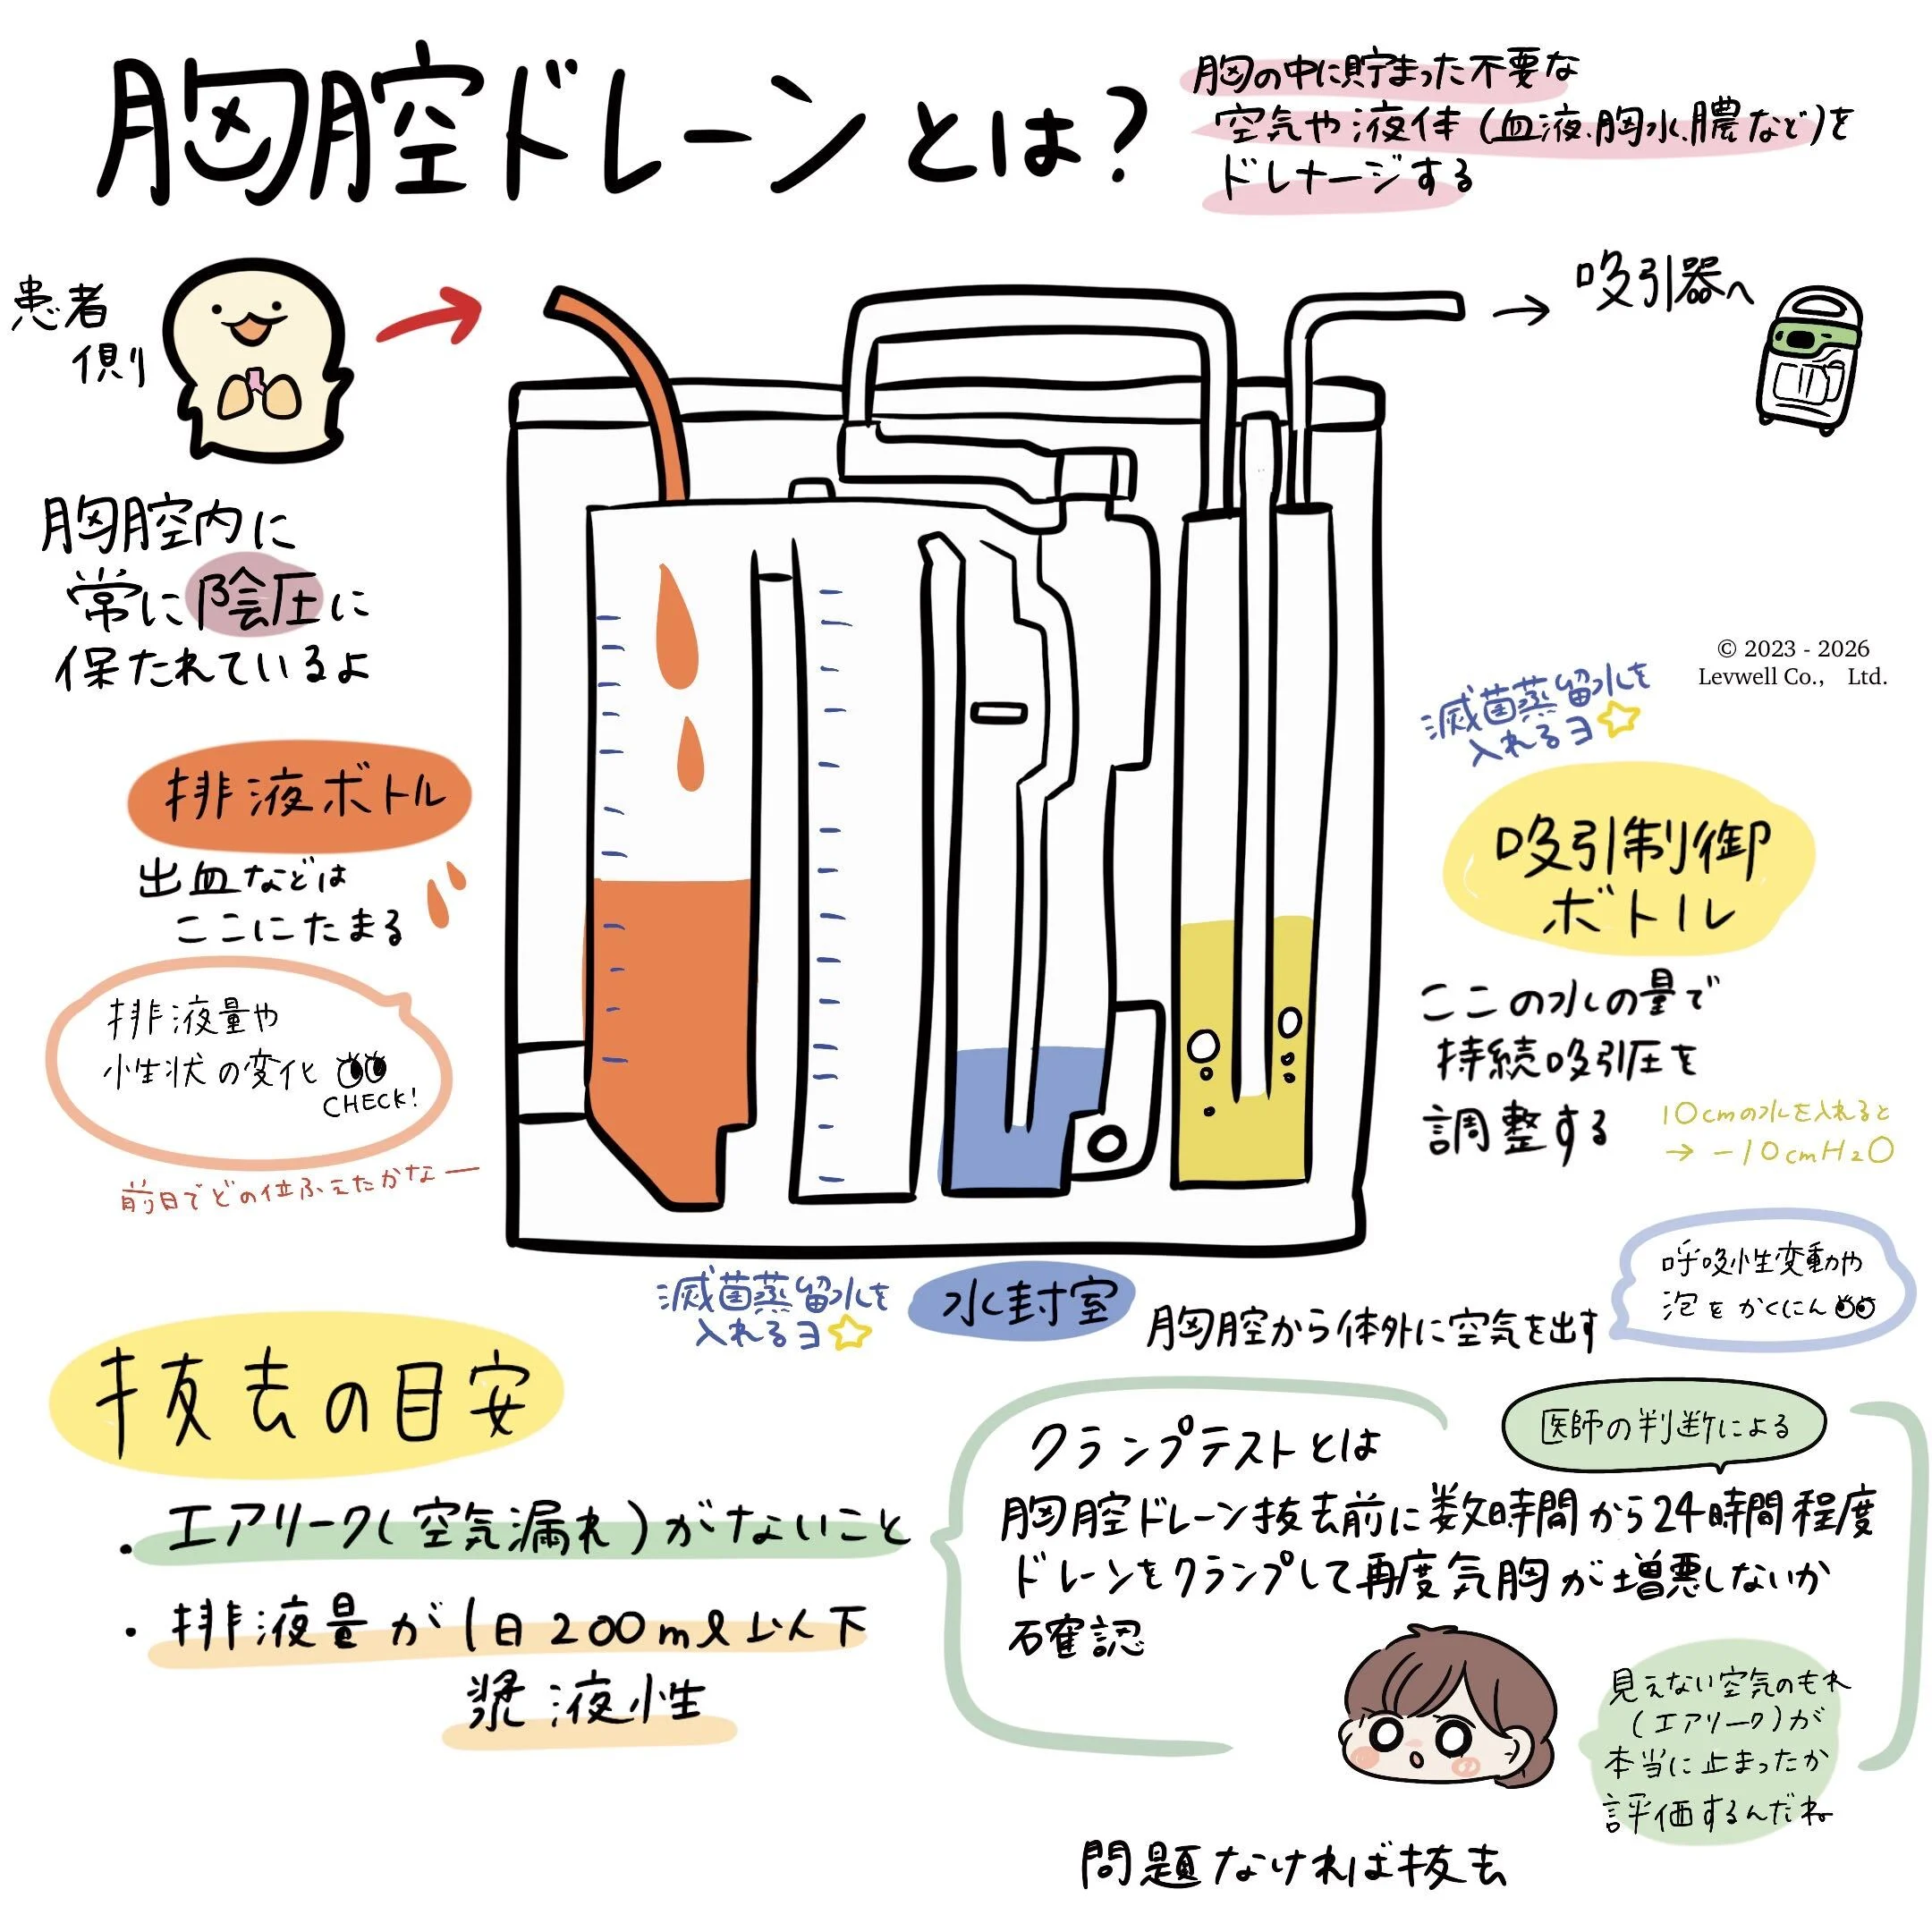 胸腔ドレーンとは?
胸の中に貯まった不要な
空気や液体(血液、胸水、膿など)を
ドレナージする
患者
側
吸引器へ
胸腔内に
常に陰圧に
保たれているよ
© 2023 - 2026
Levwell Co., Ltd.
滅菌蒸留水を
入れるヨ
排液ボトル
出血などは
ここにたまる
吸引制御
ボトル
排液量や
性状の変化
CHECK!
前日でどの位ふえたかなー
ここの水の量で
持続吸引圧を
調整する
10cmの水を入れると
→ -10cmH2O
滅菌蒸留水を
入れるヨ
水封室
胸腔から体外に空気を出す
呼吸性変動や
泡をかくにん
抜去の目安
・エアリーク(空気漏れ)がないこと
・排液量が1日200ml以下
漿液性
クランプテストとは
医師の判断による
胸腔ドレーン抜去前に数時間から24時間程度
ドレーンをクランプして再度気胸が増悪しないか
確認
見えない空気のもれ
(エアリーク)が
本当に止まったか
評価するんだね
問題なければ抜去